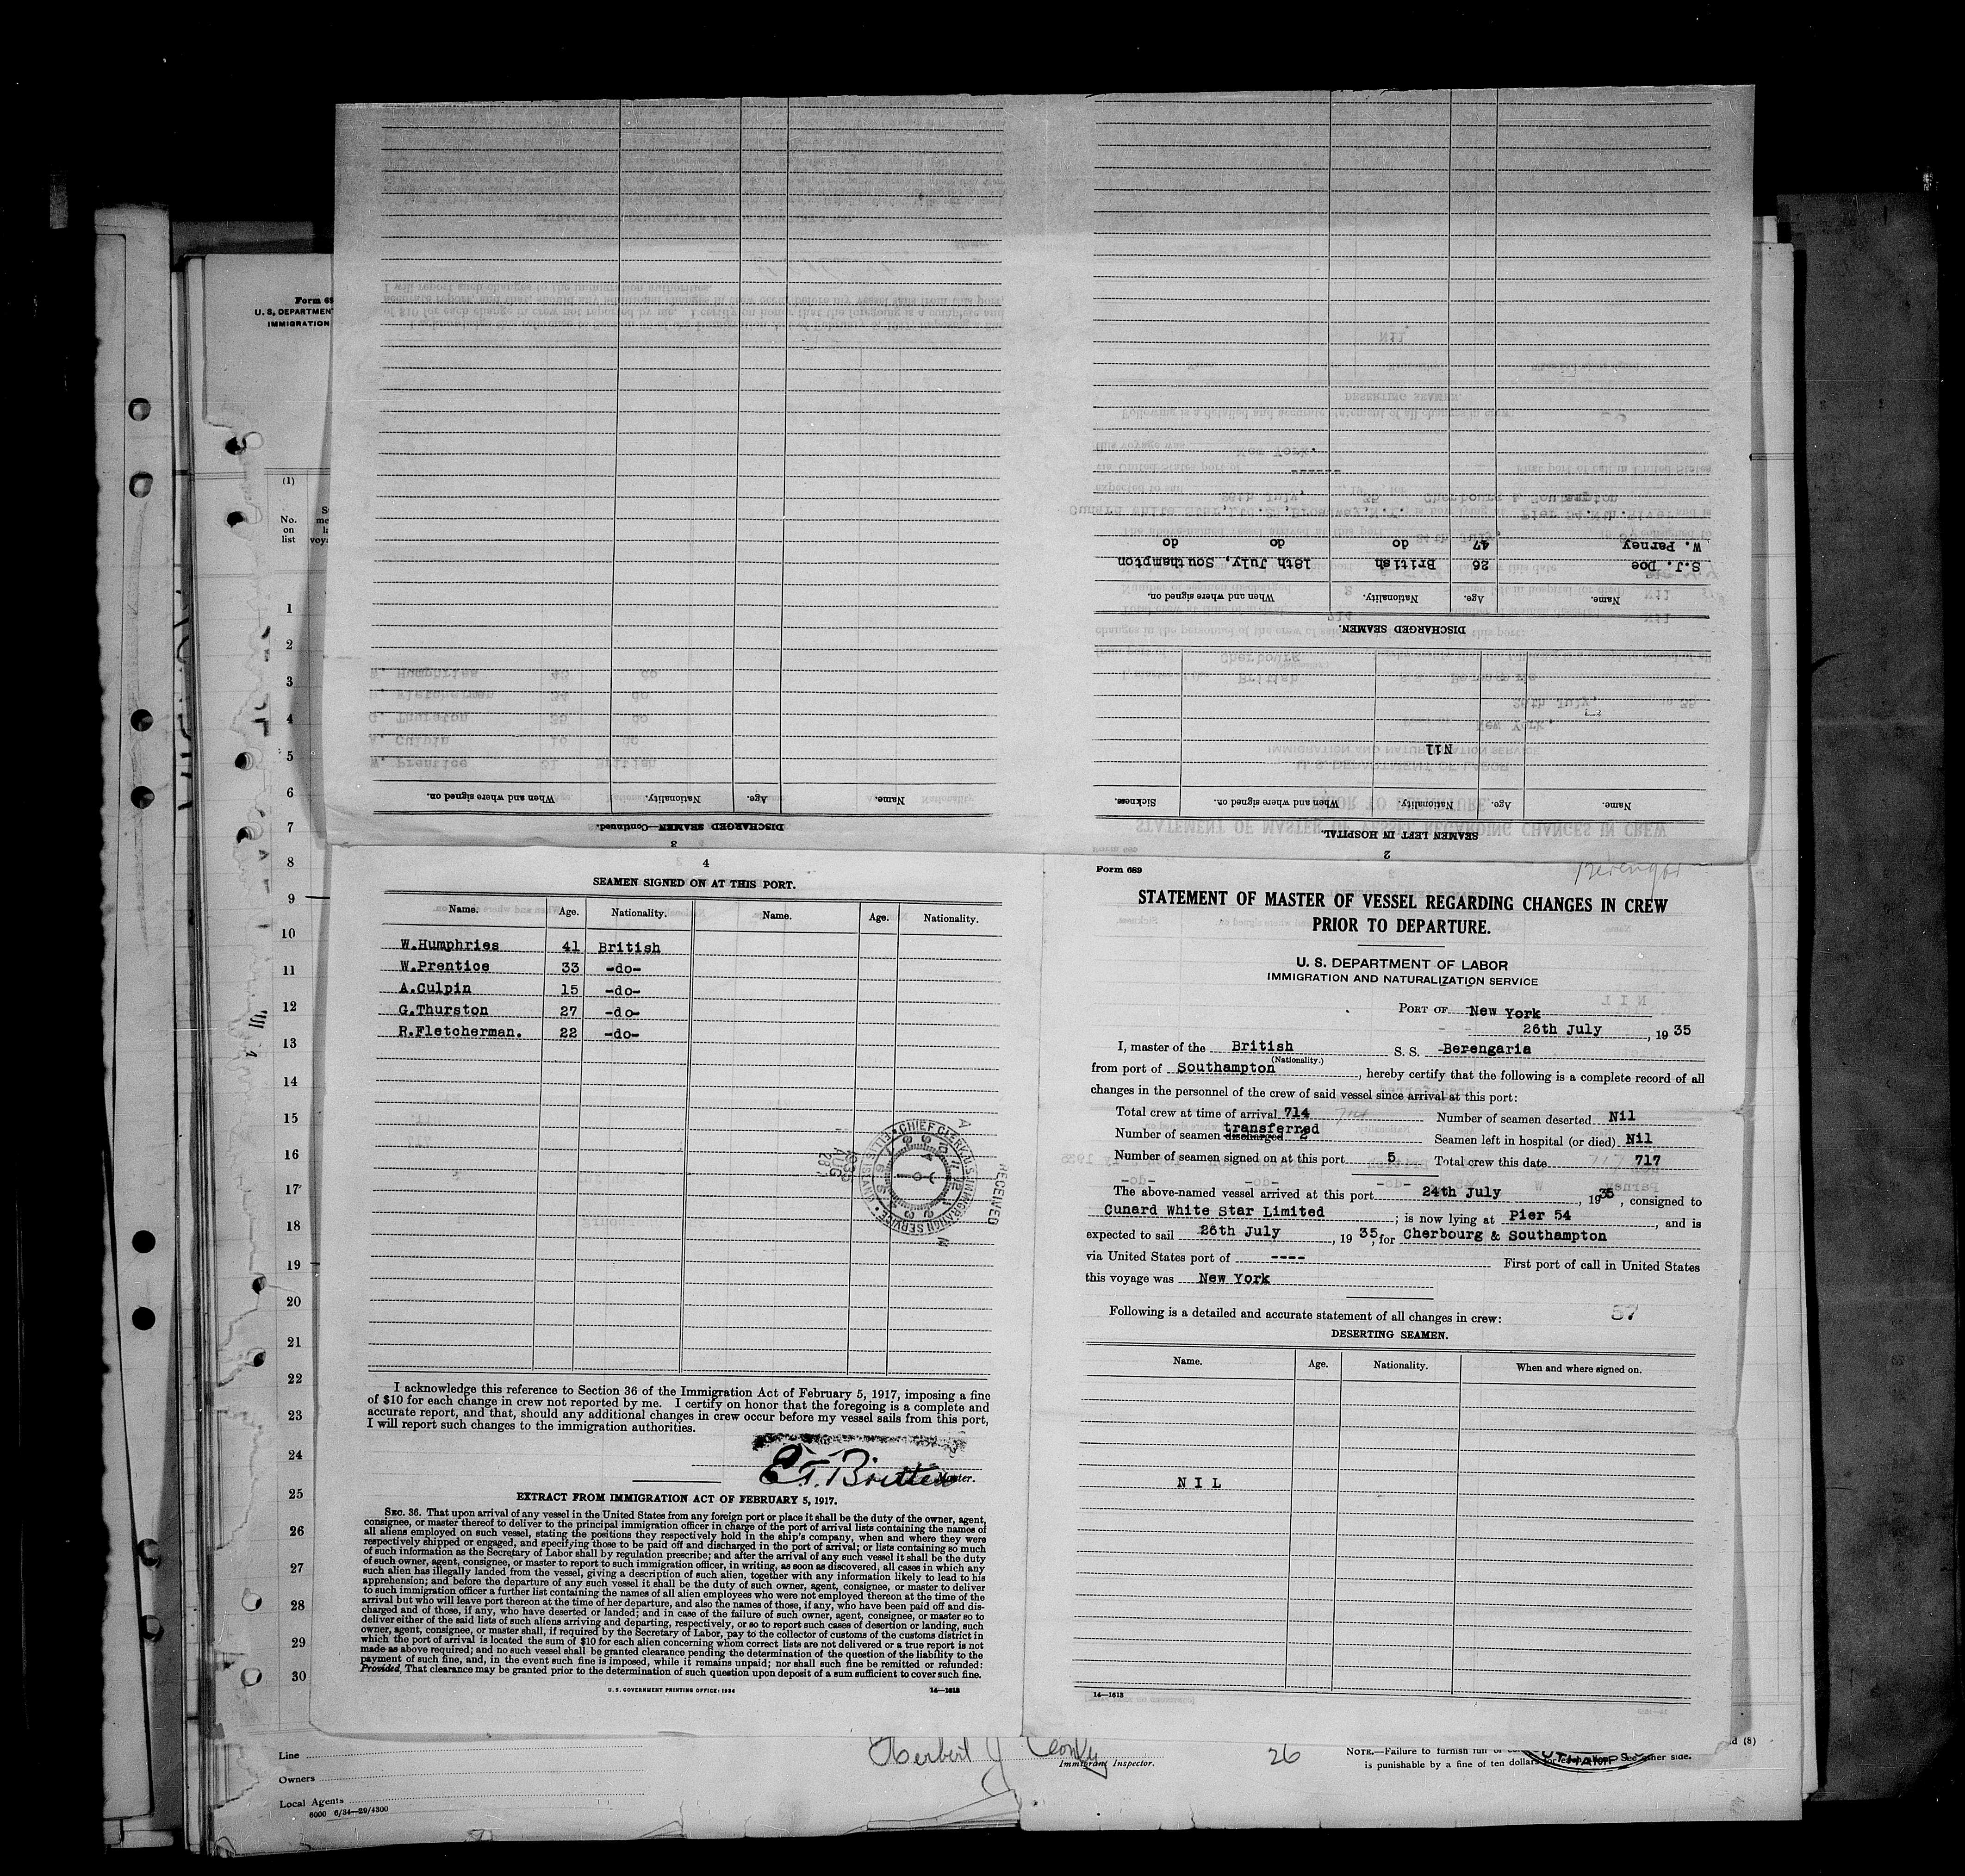 Form 689
STATEMENT OF MASTER OF VESSEL REGARDING CHANGES IN CREW
PRIOR TO DEPARTURE.
U. S. DEPARTMENT OF LABOR
IMMIGRATION AND NATURALIZATION SERVICE
PORT OF New York
26th July, 1935
I, master of the British S. S. Berengaria
(Nationality.)
from port of Southampton, hereby certify that the following is a complete record of all
changes in the personnel of the crew of said vessel since arrival at this port:
Total crew at time of arrival 714 Number of seamen deserted Nil
transferred
Number of seamen discharged 2 Seamen left in hospital (or died) Nil
Number of seamen signed on at this port 5 Total crew this date 717
The above-named vessel arrived at this port 24th July, 1935, consigned to
Cunard White Star Limited; is now lying at Pier 54, and is
expected to sail 26th July, 1935, for Cherbourg & Southampton
via United States port of ---- First port of call in United States
this voyage was New York
Following is a detailed and accurate statement of all changes in crew: 57
DESERTING SEAMEN.
Name. Age. Nationality. When and where signed on.
NIL
14—1613
2
SEAMEN LEFT IN HOSPITAL.
Name. Age. Nationality. When and where signed on. Sickness.
Nil
DISCHARGED SEAMEN.
Name. Age. Nationality. When and where signed on.
S.J. Doe 26 British 18th July, Southampton
W. Parney 47 do do do
3
DISCHARGED SEAMEN—Continued.
Name. Age. Nationality. When and where signed on.
4
SEAMEN SIGNED ON AT THIS PORT.
Name. Age. Nationality. Name. Age. Nationality.
W.Humphries 41 British
W.Prentice 33 -do-
A.Culpin 15 -do-
G.Thurston 27 -do-
R.Fletcherman. 22 -do-
I acknowledge this reference to Section 36 of the Immigration Act of February 5, 1917, imposing a fine
of $10 for each change in crew not reported by me. I certify on honor that the foregoing is a complete and
accurate report, and that, should any additional changes in crew occur before my vessel sails from this port,
I will report such changes to the immigration authorities.
E.T. Britten Master.
EXTRACT FROM IMMIGRATION ACT OF FEBRUARY 5, 1917.
SEC. 36. That upon arrival of any vessel in the United States from any foreign port or place it shall be the duty of the owner, agent,
consignee, or master thereof to deliver to the principal immigration officer in charge of the port of arrival lists containing the names of
all aliens employed on such vessel, stating the positions they respectively hold in the ship's company, when and where they were
respectively shipped or engaged, and specifying those to be paid off and discharged in the port of arrival; or lists containing so much
of such information as the Secretary of Labor shall by regulation prescribe; and after the arrival of any such vessel it shall be the duty
of such owner, agent, consignee, or master to report to such immigration officer, in writing, as soon as discovered, all cases in which any
such alien has illegally landed from the vessel, giving a description of such alien, together with any information likely to lead to his
apprehension; and before the departure of any such vessel it shall be the duty of such owner, agent, consignee, or master to deliver
to such immigration officer a further list containing the names of all alien employees who were not employed thereon at the time of the
arrival but who will leave port thereon at the time of her departure, and also the names of those, if any, who have been paid off and dis-
charged and of those, if any, who have deserted or landed; and in case of the failure of such owner, agent, consignee, or master so to
deliver either of the said lists of such aliens arriving and departing, respectively, or so to report such cases of desertion or landing, such
owner, agent, consignee, or master shall, if required by the Secretary of Labor, pay to the collector of customs of the customs district in
which the port of arrival is located the sum of $10 for each alien concerning whom correct lists are not delivered or a true report is not
made as above required; and no such vessel shall be granted clearance pending the determination of the question of the liability to the
payment of such fine, and, in the event such fine is imposed, while it remains unpaid; nor shall such fine be remitted or refunded:
Provided, That clearance may be granted prior to the determination of such question upon deposit of a sum sufficient to cover such fine.
U. S. GOVERNMENT PRINTING OFFICE: 1934 14—1613
RECEIVED
CHIEF CLERK
U.S. IMMIGRATION SERVICE
ELLIS ISLAND
1935
AUG
Form 68
U. S. DEPARTMEN
IMMIGRATION
(1)
No.
on
list
1
2
3
4
5
6
7
8
9
10
11
12
13
14
15
16
17
18
19
20
21
22
23
24
25
26
27
28
29
30
Line
Owners
Local Agents
6000 6/34—29/4300
Herbert J
Immigrant Inspector.
26
NOTE.—Failure to furnish full or
is punishable by a fine of ten dollars See other side.